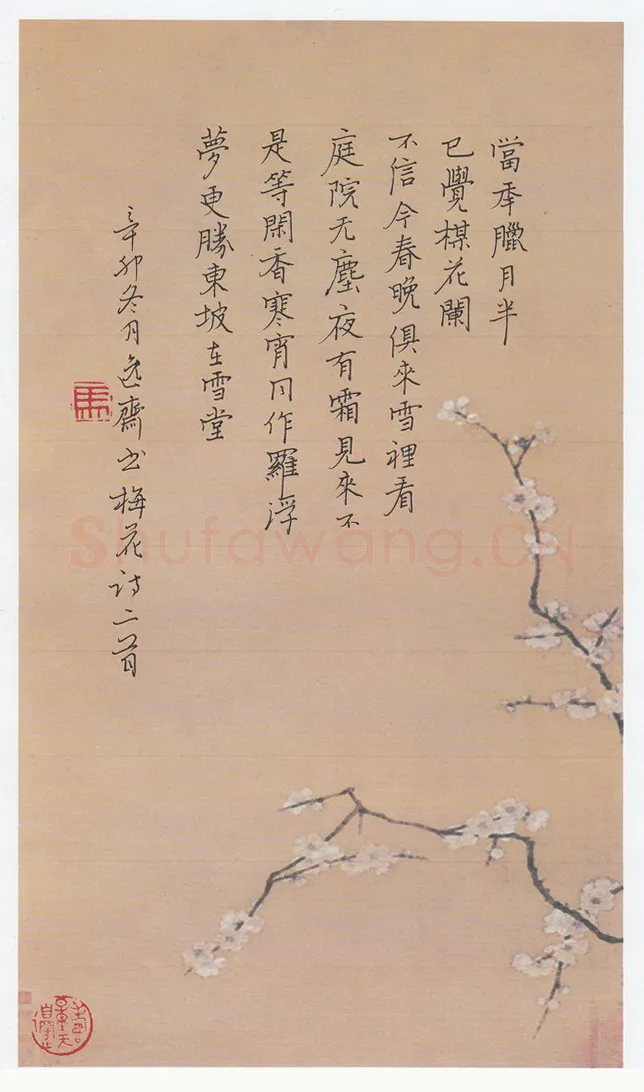 當秊臘月半
已覺楳花闌
不信今春晚俱來雪裡看
庭院无塵夜有霜見來不
是等閑香寒宵同作羅浮
夢更勝東坡在雪堂
辛卯冬月逸齋书梅花诗二首
馬
Shufawang.CN